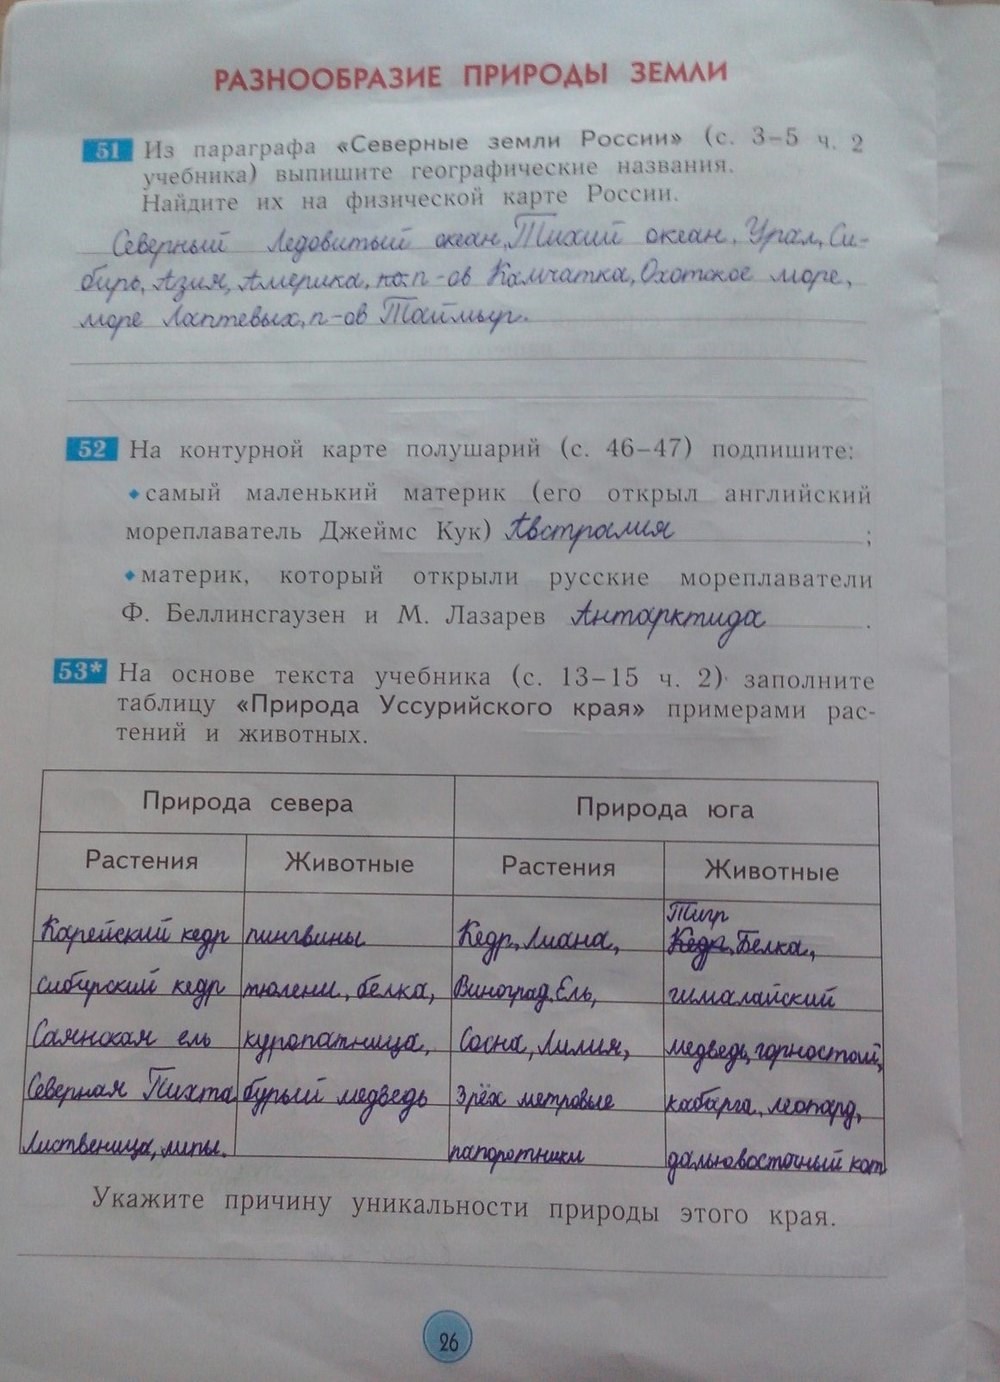 РАЗНООБРАЗИЕ ПРИРОДЫ ЗЕМЛИ
51 Из параграфа «Северные земли России» (с. 3–5 ч. 2
учебника) выпишите географические названия.
Найдите их на физической карте России.
Северный Ледовитый океан, Тихий океан, Урал, Си-
бирь, Азия, Америка, п-ов Камчатка, Охотское море,
море Лаптевых, п-ов Таймыр.
52 На контурной карте полушарий (с. 46–47) подпишите:
• самый маленький материк (его открыл английский
мореплаватель Джеймс Кук) Австралия ;
• материк, который открыли русские мореплаватели
Ф. Беллинсгаузен и М. Лазарев Антарктида .
53* На основе текста учебника (с. 13–15 ч. 2) заполните
таблицу «Природа Уссурийского края» примерами рас-
тений и животных.
Природа севера Природа юга
Растения Животные Растения Животные
Тигр
Карейский кедр пингвины Кедр, Лиана, Кедр, Белка,
сибирский кедр тюлени, белка, Виноград. Ель, гималайский
Саянская ель куропатница, Сосна, Лилия, медведь, горностай,
Северная Пихта бурый медведь Зрёх метровые кабарга, леопард,
Лиственица, липы. папоротники дальновосточный кот
Укажите причину уникальности природы этого края.
26